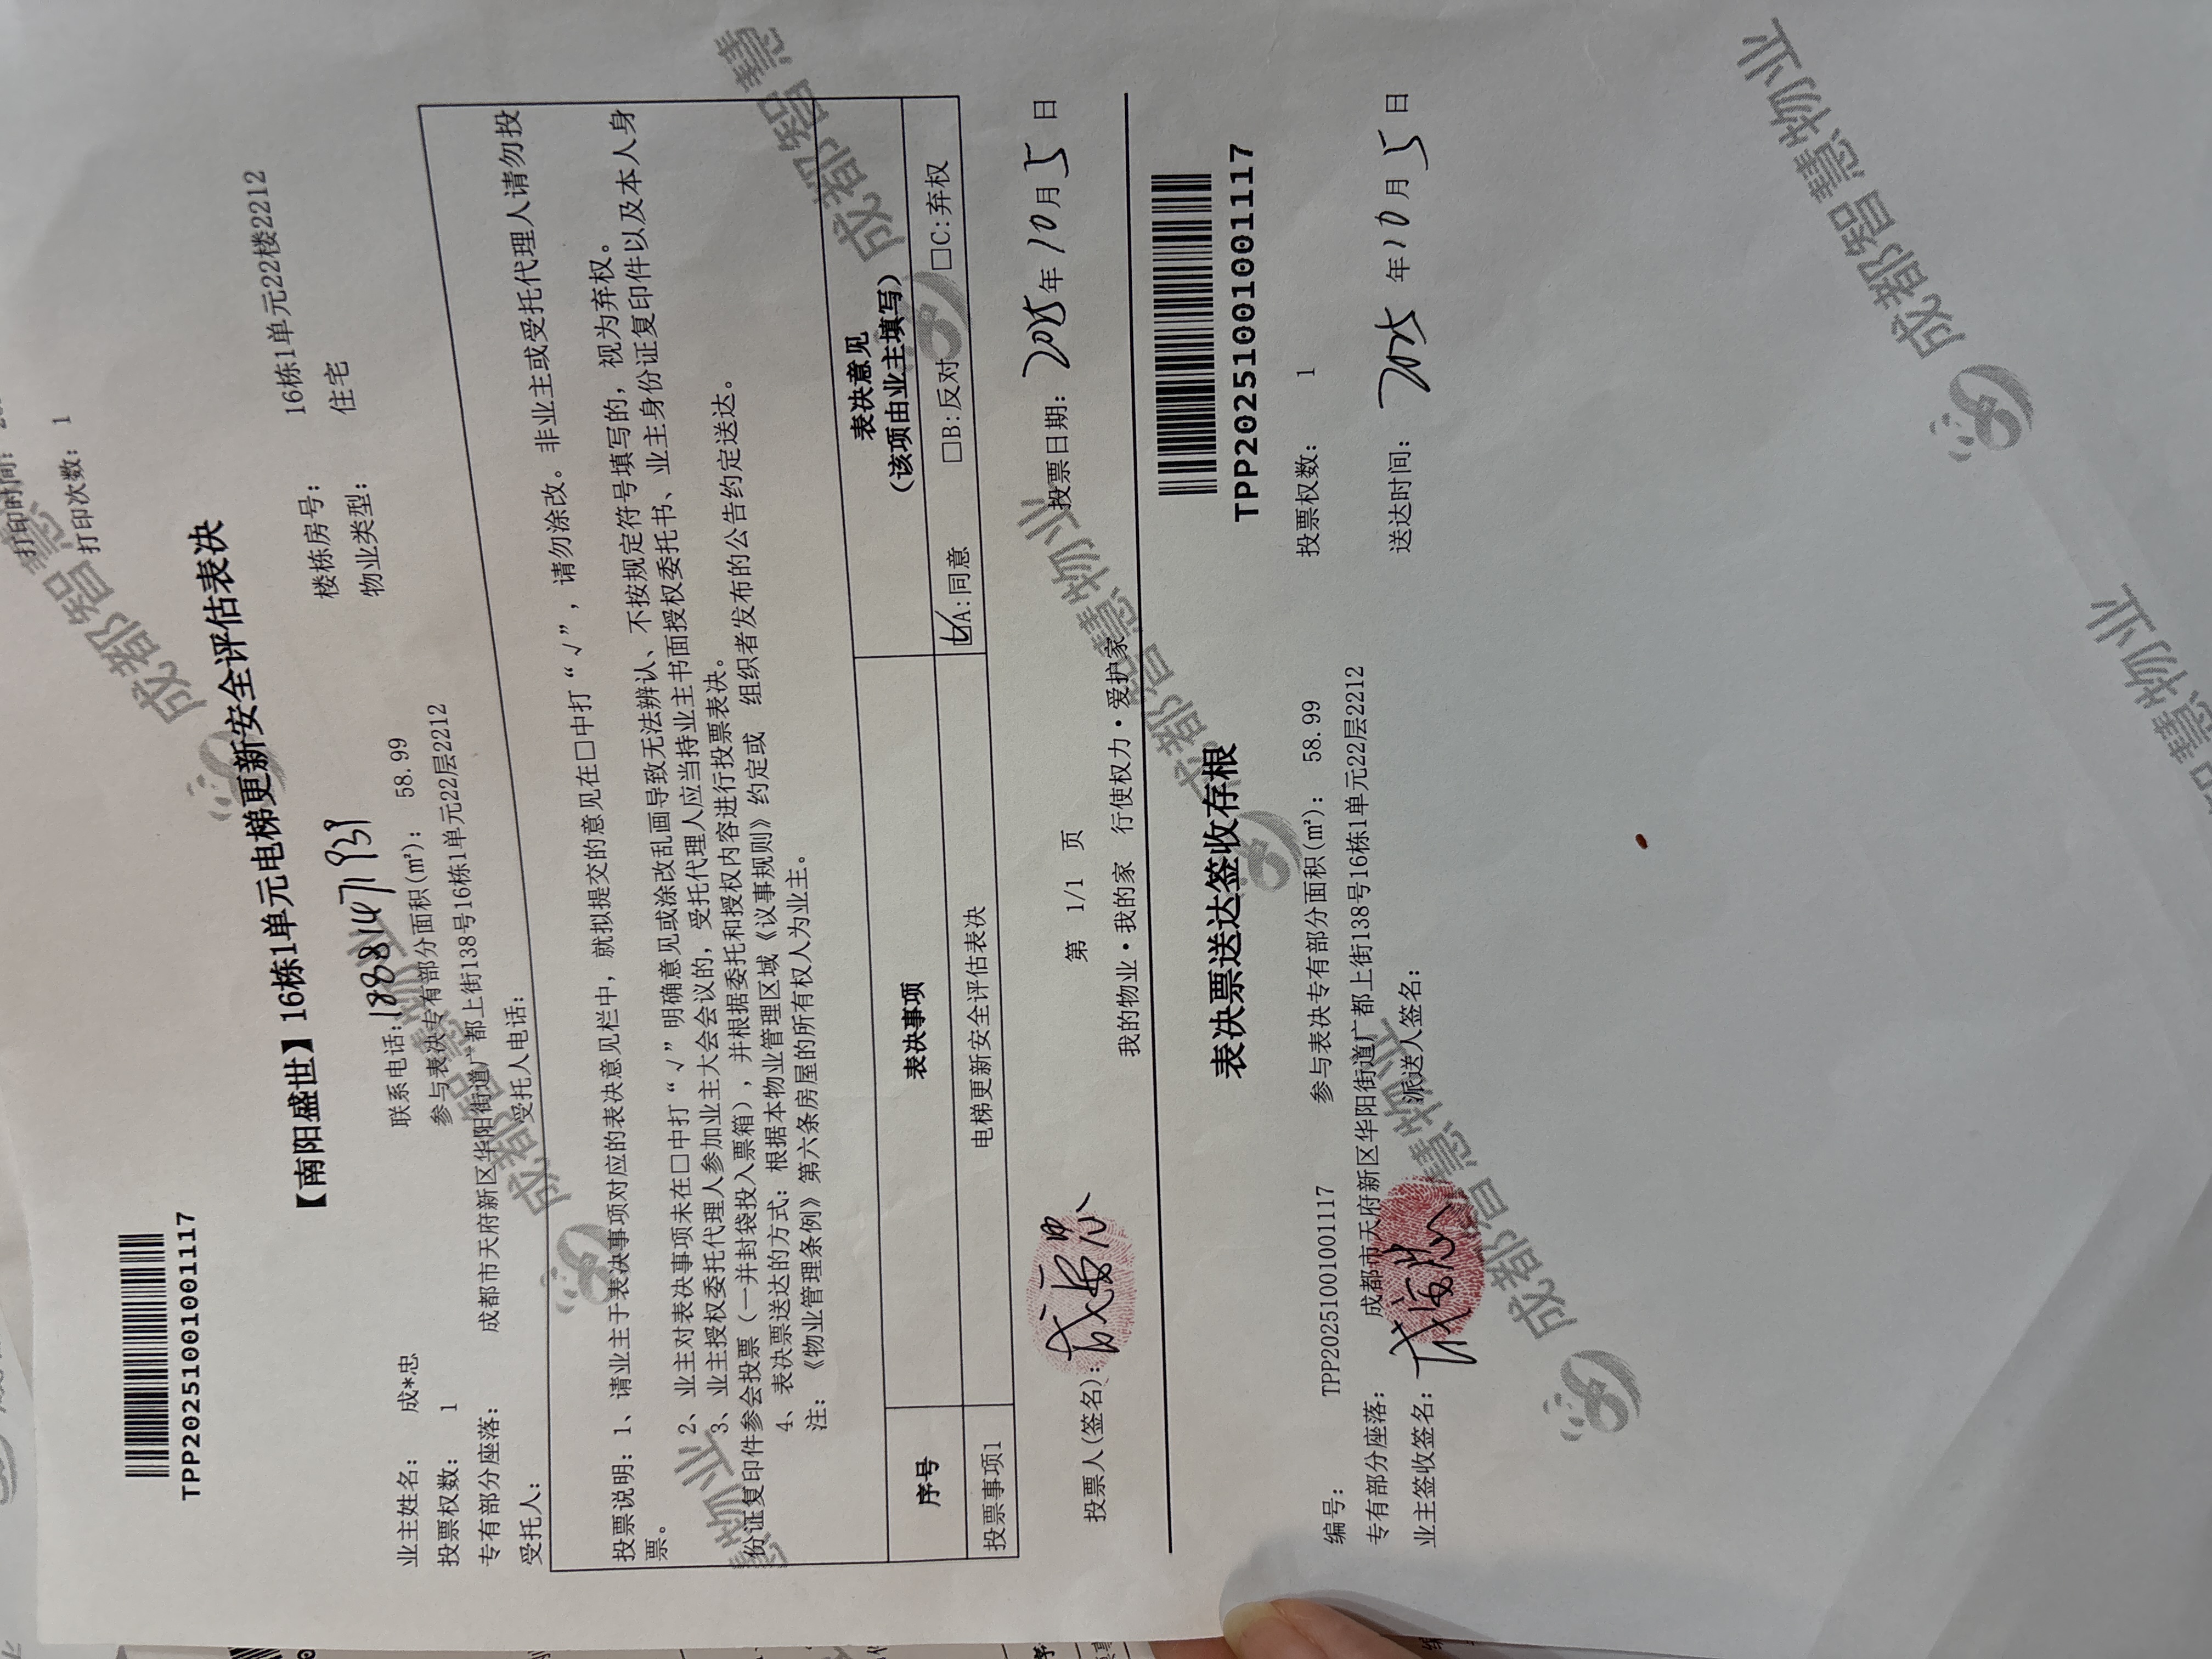 打印时间：
打印次数： 1
TPP20251001001117
【南阳盛世】16栋1单元电梯更新安全评估表决
业主姓名： 成*忠 联系电话： 楼栋房号： 16栋1单元22楼2212
投票权数： 1 参与表决专有部分面积(㎡)： 58.99 物业类型： 住宅
专有部分座落： 成都市天府新区华阳街道广都上街138号16栋1单元22层2212
受托人： 受托人电话：
投票说明：1、请业主于表决事项对应的表决意见栏中，就拟提交的意见在□中打“√”，请勿涂改。非业主或受托代理人请勿投
票。
2、业主对表决事项未在□中打“√”明确意见或涂改乱画导致无法辨认、不按规定符号填写的，视为弃权。
3、业主授权委托代理人参加业主大会会议的，受托代理人应当持业主书面授权委托书、业主身份证复印件以及本人身
份证复印件参会投票（一并封袋投入票箱），并根据委托和授权内容进行投票表决。
4、表决票送达的方式：根据本物业管理区域《议事规则》约定或 组织者发布的公告约定送达。
注：《物业管理条例》第六条房屋的所有权人为业主。
序号 表决事项 表决意见
（该项由业主填写）
投票事项1 电梯更新安全评估表决 ☑A:同意 □B:反对 □C:弃权
投票人(签名): 第 1/1 页 投票日期: 2025年10月5日
我的物业·我的家 行使权力·爱护家
表决票送达签收存根
TPP20251001001117
编号: TPP20251001001117 参与表决专有部分面积(㎡)： 58.99 投票权数： 1
专有部分座落: 成都市天府新区华阳街道广都上街138号16栋1单元22层2212
业主签收签名: 派送人签名: 送达时间: 2025年10月5日
成都智慧物业
成都智慧物业
成都智慧物业
成都智慧物业
成都智慧物业